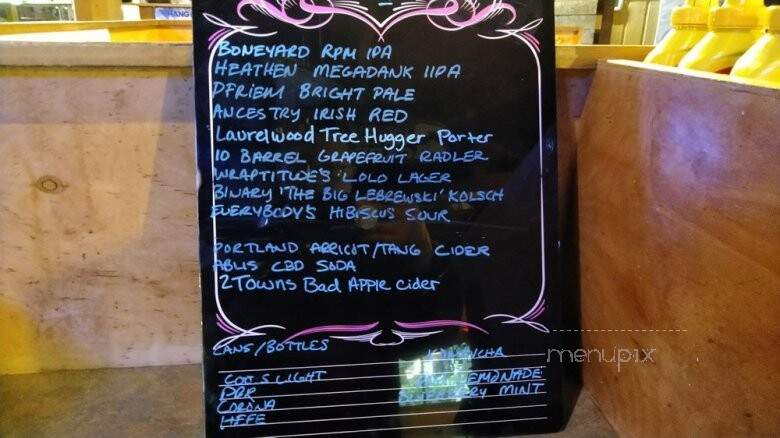 BONEYARD RPM IPA
HEATHEN MEGADANK IIPA
PFRIEM BRIGHT PALE
ANCESTRY IRISH RED
Laurelwood Tree Hugger Porter
10 BARREL GRAPEFRUIT RADLER
WRAPTITUDE'S LOLO LAGER
BINARY 'THE BIG LEBREWSKI' KOLSCH
EVERYBODY'S HIBISCUS SOUR
PORTLAND APRICOT/TANG CIDER
ABLIS CBD SODA
2 Towns Bad Apple cider
CANS/BOTTLES
COORS LIGHT
PBR
CORONA
HEFE
LEMONADE
MINT
menupix